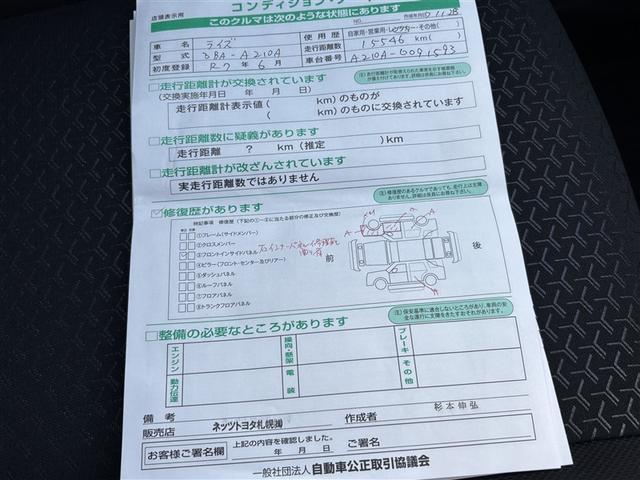 店頭表示用
コンディション・ノート
NO.
作成年月日 10.11.28
このクルマは次のような状態にあります
車名 ライズ
使用歴 自家用・営業用・レンタカー・その他( )
型式 3BA-A210A
走行距離数 15546 km( )
初度登録 R7年6月
車台番号 A210A-0091593
□走行距離計が交換されています
(交換実施年月日 年 月 日)
走行距離計表示値( km)のものが
( km)のものに交換されています
□走行距離数に疑義があります
走行距離 ? km(推定 )km
□走行距離計が改ざんされています
実走行距離数ではありません
修復歴があります
特記事項 修復歴(下記の①~⑧に当たる部分の修正及び交換歴)
①フレーム(サイドメンバー)
②クロスメンバー
③フロントインサイドパネル
④ピラー(フロント・センター及びリアー)
⑤ダッシュパネル
⑥ルーフパネル
⑦フロアパネル
⑧トランクフロアパネル
前
後
A
A
□整備の必要なところがあります
エンジン
操向・懸架
ブレーキ
動力伝達
電装
その他
備考
販売店 ネッツトヨタ札幌㈱
作成者 杉本伸弘
お客様ご署名欄
上記の内容を確認しました。
年 月 日
ご署名
一般社団法人 自動車公正取引協議会